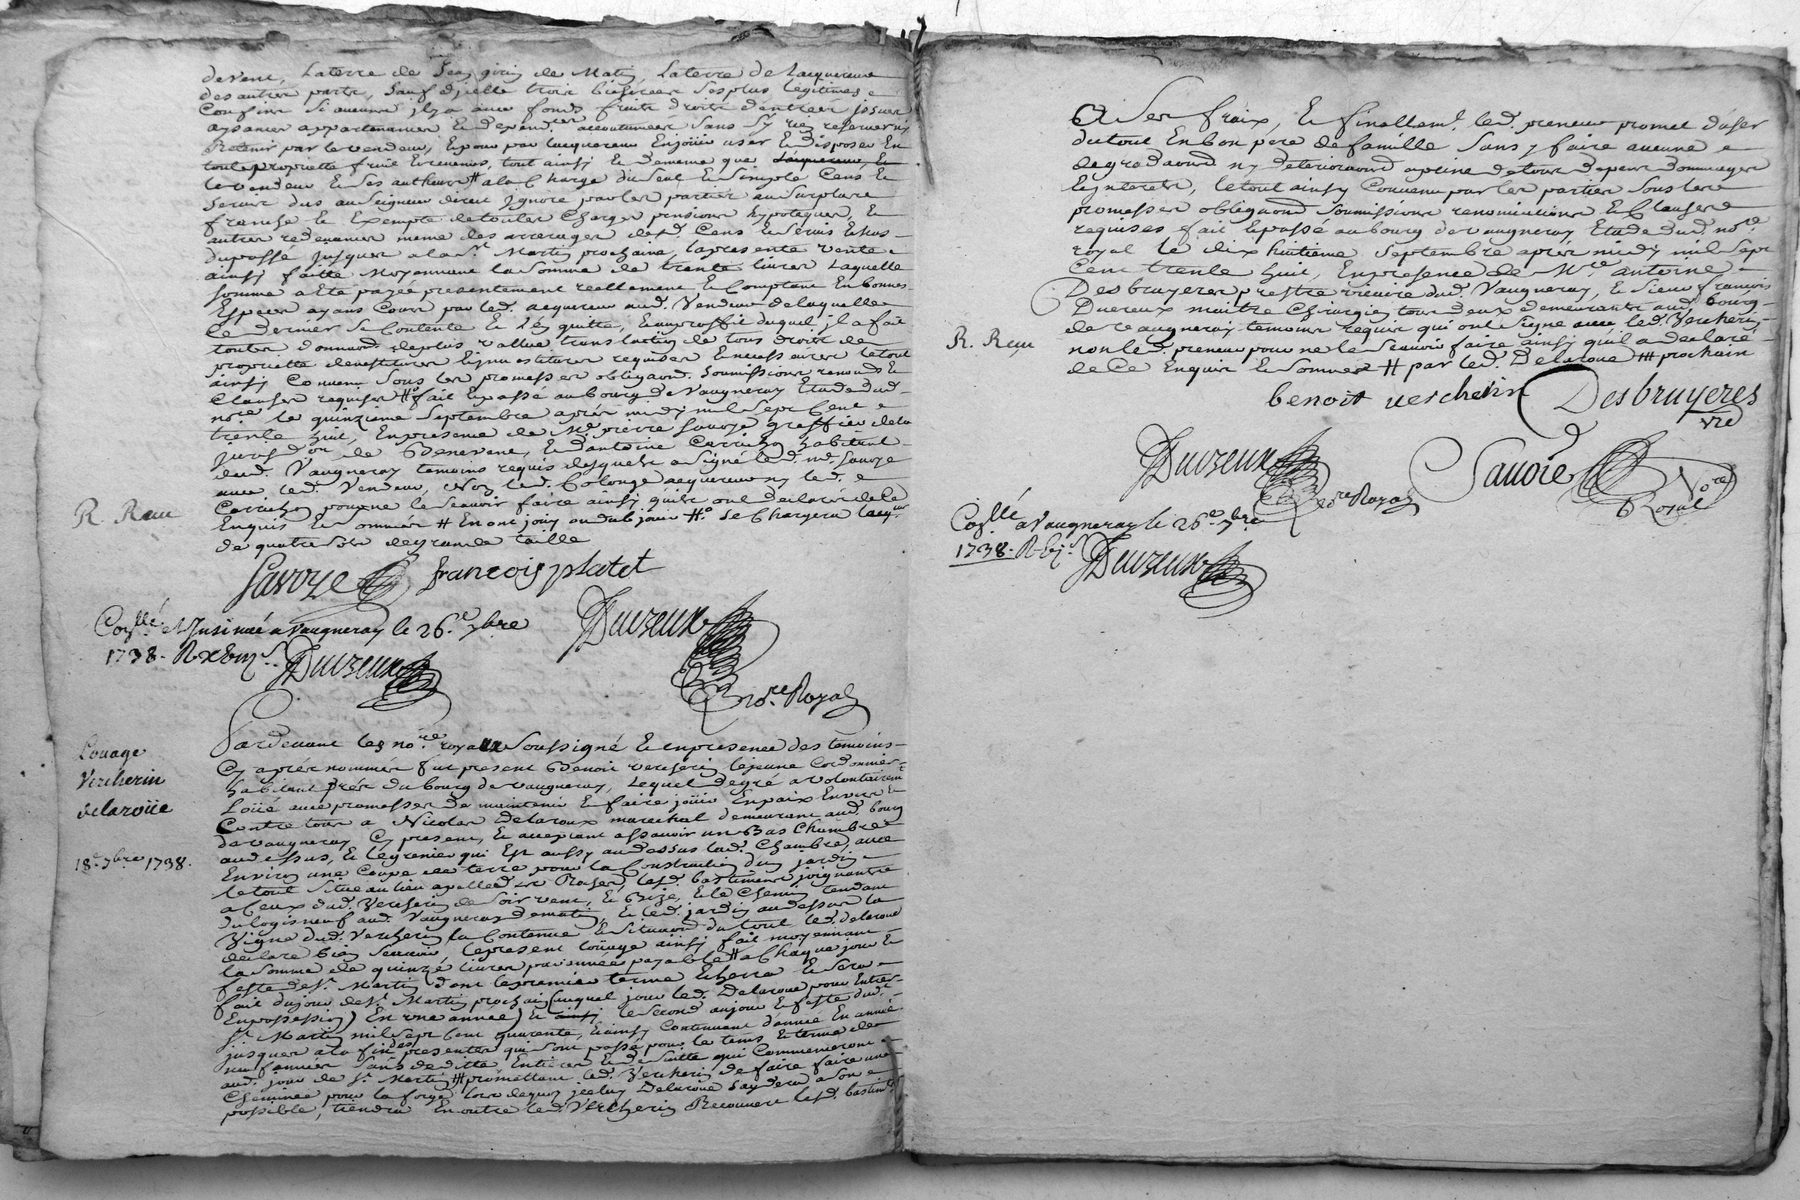 de vent, La terre de Jean girin de Matin, La terre de Lacquereur
des autres parts, Sauf desdits trois Listes ses plus legitimes
Confins Si aucuns jl y a avec fonds fruits droits d'entrées jssues
aysances appartenances & depend.ces accoutumées Sans S'y rien reserver ny
Retenir par le vendeur, & pour par lacquereur En joüir user & disposer En
toute proprieté fruits & revenus, tout ainsy & de meme que
le vendeur & Ses autheurs # a la Charge du Seul & simple Cens &
Servis dus au Seigneur direct jgnoré par les parties au surplus
franche & Exempte de toutes Charges pensions hypoteques, &
autres redevances meme des arrerages desd. Cens & Servis Echus
du passé jusques a la S.t Martin prochaine, la presente vente
ainsy faitte Moyennant la somme de trente livres Laquelle
somme a Eté payée presentement reellement & Comptant En bonnes
Especes ayans Cours par led. acquereur aud. Vendeur de laquelle
Ce dernier Se Contente & L'En quitte, & au proffit duquel jl a fait
toutes donnaõns de plus vallue translation de tous droits de
proprieté devestitures & jnvestitures requises & necessaires Le tout
ainsy Convenu Sous les promesses obligaõns Soumissions renonc.s &
Clauses requises # fait & passé au bourg de Vaugneray Etude dud.
no.re le quinzieme Septembre après midy mil Sept Cent
trente huit, En presence de M.e pierre Savoye greffier de la
jurisd.on de Benevent, & d'antoine Carrichon habitant
dud. Vaugneray temoins requis desquels a Signé led. m.e Savoye
avec led. Vendeur, Non led. Colonge acquereur ny led.
Carrichon pour ne le Scavoir faire ainsy qu'ils ont declaré de Ce
Enquis & sommés # En ont jouy ou dub jouir #o Se Chargera lacqur
de quatre sols de grande taille
R. Reçu
Savoye françois platet
Con.llé et Insinué a vaugneray le 26.e 7bre
1738. R. Duvzeux
Duvzeux
no.re Royal
Louage
Vercherin
delaroüe
18.e 7bre 1738.
Pardevant les no.re royal Soussigné & en presence des temoins
Cy après nommés fut present Benoit vercherin lejeune Cordonnier
habitant près du bourg de vaugneray, Lequel de gré a volontairem.t
Loüé avec promesses de maintenir & faire joüir En paix Envers &
Contre tous a Nicolas Delaroux marechal demeurant aud. bourg
de vaugneray Cy present, & acceptant assavoir un Bas Chambre
au dessus, & le grenier qui Est aussy au dessus lad. Chambre, avec
Environ une Coupe de terre pour la Construction d'un jardin
le tout Situé au lieu apellé Le Rafer, lesd. bastimens joignants
a Ceux dud. Vercherin de Soir vent, & Bize, & le Chemin tendant
du logis neuf aud. Vaugneray de matin, & led. jardin au dessus la
Vigne dud. Vercherin La Contenue & Situaõn du tout led. delaroüe
declare bien Scavoir, le present loüage ainsy fait moyennant
la Somme de quinze livres par année payable # a Chaque jour &
feste de S.t Martin dont le premier terme Echerra & Sera
fait du jour de S.t Martin prochain (auquel jour led. Delaroue pour Entrer
En possession) En une année) & le Second au jour & feste dud.
S.t Martin mil sept Cent quarante, & ainsy Continuant d'année En année
jusques a la fin des presentes qui Sont passé pour le tems & terme de
neuf années Sans deditte Entieres & de Suitte qui Commenceront
aud. jour de S.t Martin # promettant led. Vercherin de faire faire une
Cheminée pour la forge lors de quoy jceluy Delaroüe L'aydera a Son
possible, tiendra En outre led. Vercherin Recouvert lesd. bastim.ts
A Ses fraix, & finallem.t led. preneur promet d'user
du tout En bon pere de famille Sans y faire aucune
degradaõn ny deterioraõn a peine de tous depens dommages
& jnterets, le tout ainsy Convenu par les parties Sous les
promesses obligaõns Soumissions renonciations & Clauses
requises fait & passé au bourg de vaugneray Etude dud. no.re
royal le dix huitieme Septembre après midy mil Sept
Cent trente huit, En presence de M.re antoine
Desbruyeres prestre vicaire dud. Vaugneray, & Sieur françois
Ducreux maitre Chirurgien tous deux demeurants aud. bourg
de vaugneray temoins requis qui ont Signé avec led. Vercherin,
non led. preneur pour ne le Scavoir faire ainsy qu'il a declaré
de Ce Enquis & Sommés # par led. Delaroue ## prochain
R. Reçu
benoit verchelin Desbruyeres
vre
Duvzeux
no.re Royal
Savoie
No.re
Royal
Con.llé a Vaugneray le 26.e 7bre
1738. R. Duvzeux